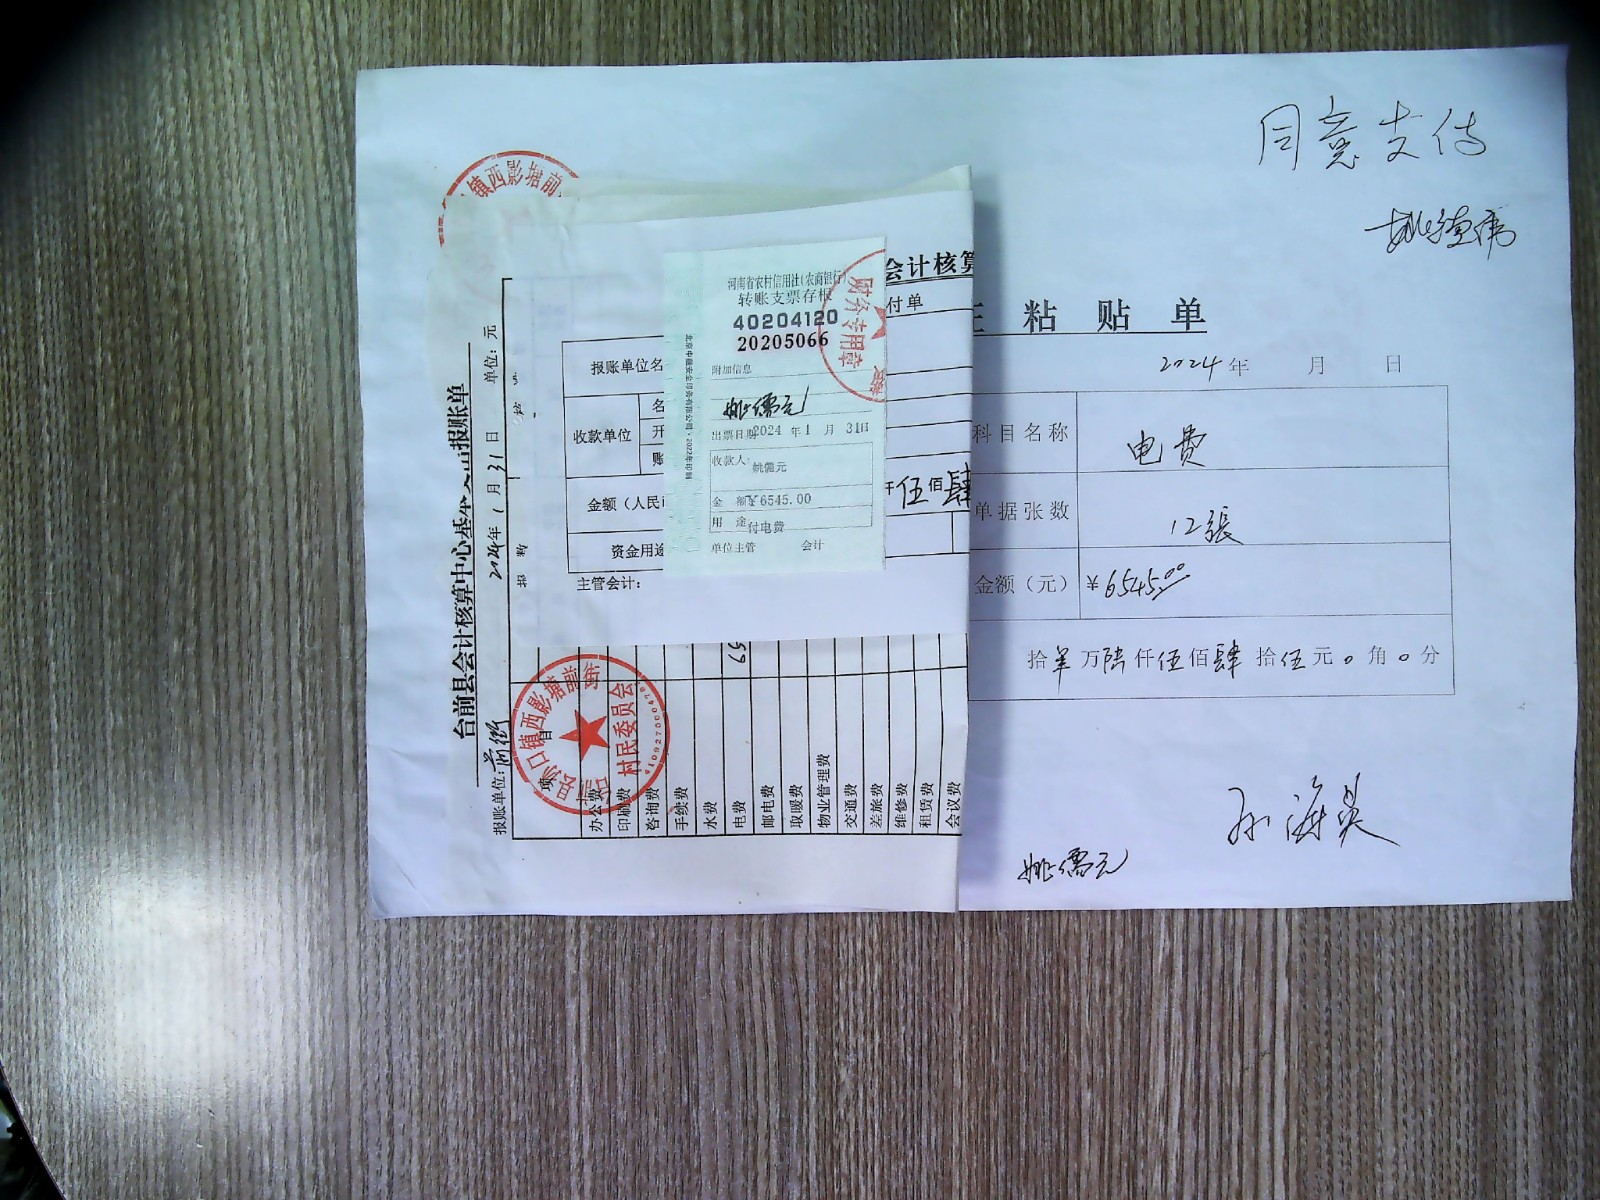 同意支付
姚德瑞
粘 贴 单
2024年 月 日
科目名称 电费
单据张数 12张
金额（元） ¥6545.00
拾 万陆仟伍佰肆拾伍元0角0分
孙海英
姚儒元
会计核算
付单
报账单位名
收款单位
名
开
账
金额（人民
仟伍佰肆
资金用途
主管会计：
河南省农村信用社（农商银行）
转账支票存根
40204120
20205066
附加信息
姚儒元
出票日期2024 年 1 月 31日
收款人：姚儒元
金 额¥6545.00
用 途 付电费
单位主管 会计
财务专用章
镇西影塘前
台前县会计核算中心基本支出报账单
报账单位：前街 2024年 1 月 31 日 单位：元
项 目
办公费
印刷费
咨询费
手续费
水费
电费
邮电费
取暖费
物业管理费
交通费
差旅费
维修费
租赁费
会议费
口镇西影塘前街
村民委员会